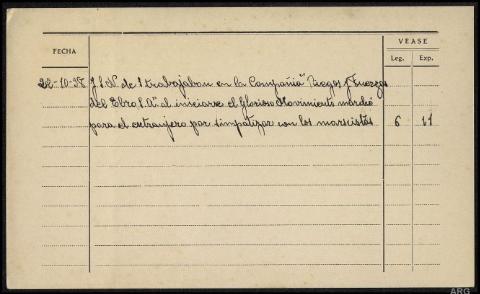 VEASE
FECHA
Leg. Exp.
22-10-38 J.S.N. de 1 trabajaban en la Compañia "Riegos y Fuerzas
del Ebro S.A." al iniciarse el Glorioso Movimiento marchó
para el extranjero por simpatizar con los marxistas 6 11
ARG